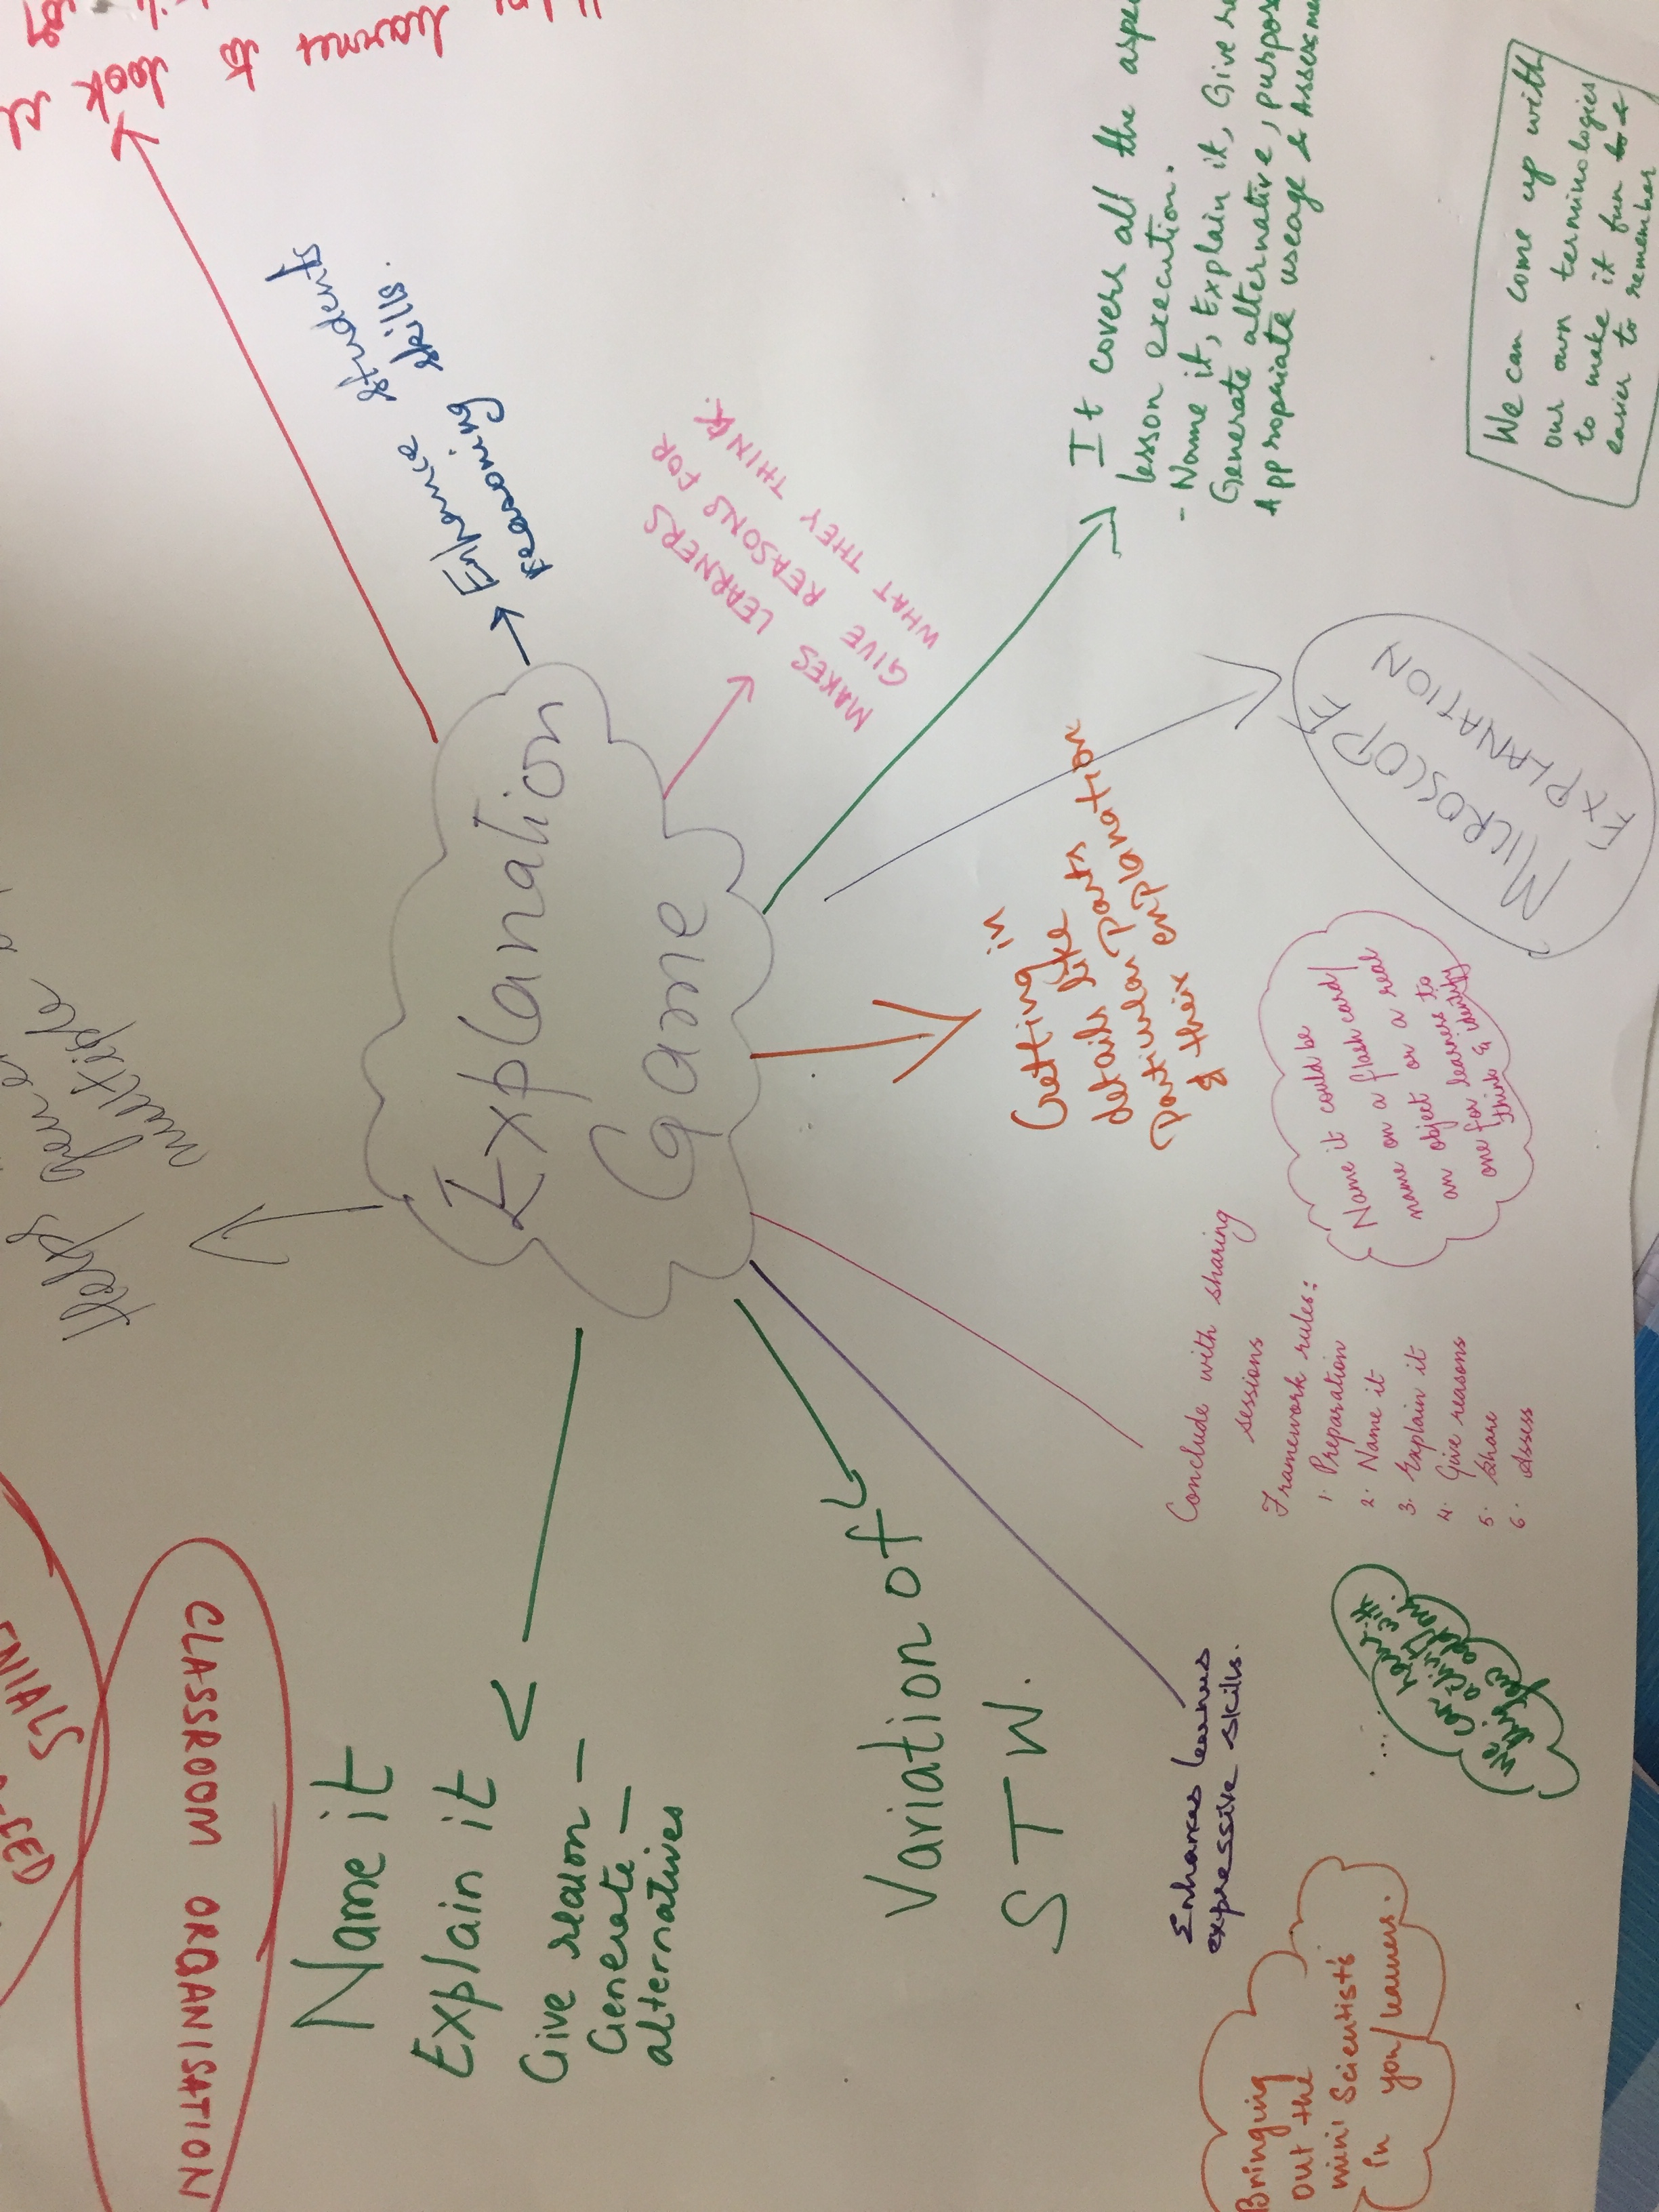 Explanation
Game
learner to
look
Enhance students
reasoning skills.
MAKES LEARNERS
GIVE REASONS FOR
WHAT THEY THINK.
It covers all the
lesson execution.
- Name it, Explain it, Give
Generate alternative,
Appropriate useage &
We can come up with
our own terminologies
to make it fun &
easier to remember
MICROSCOPE
EXPLANATION
Getting in
details like
particular parts
& their explanation
Name it could be
name on a flash card/
an object or a real
one for learners to
think & identify
Conclude with sharing
sessions
Framework rules:
1. Preparation
2. Name it
3. Explain it
4. Give reasons
5. Share
6. Assess
Enhances learners
expressive skills.
We can
Bringing
out the
mini Scientist's
in you/learners.
Variation of
STW.
Name it
Explain it
Give reason –
Generate –
alternatives
Helps
multiple
CLASSROOM ORGANISATION